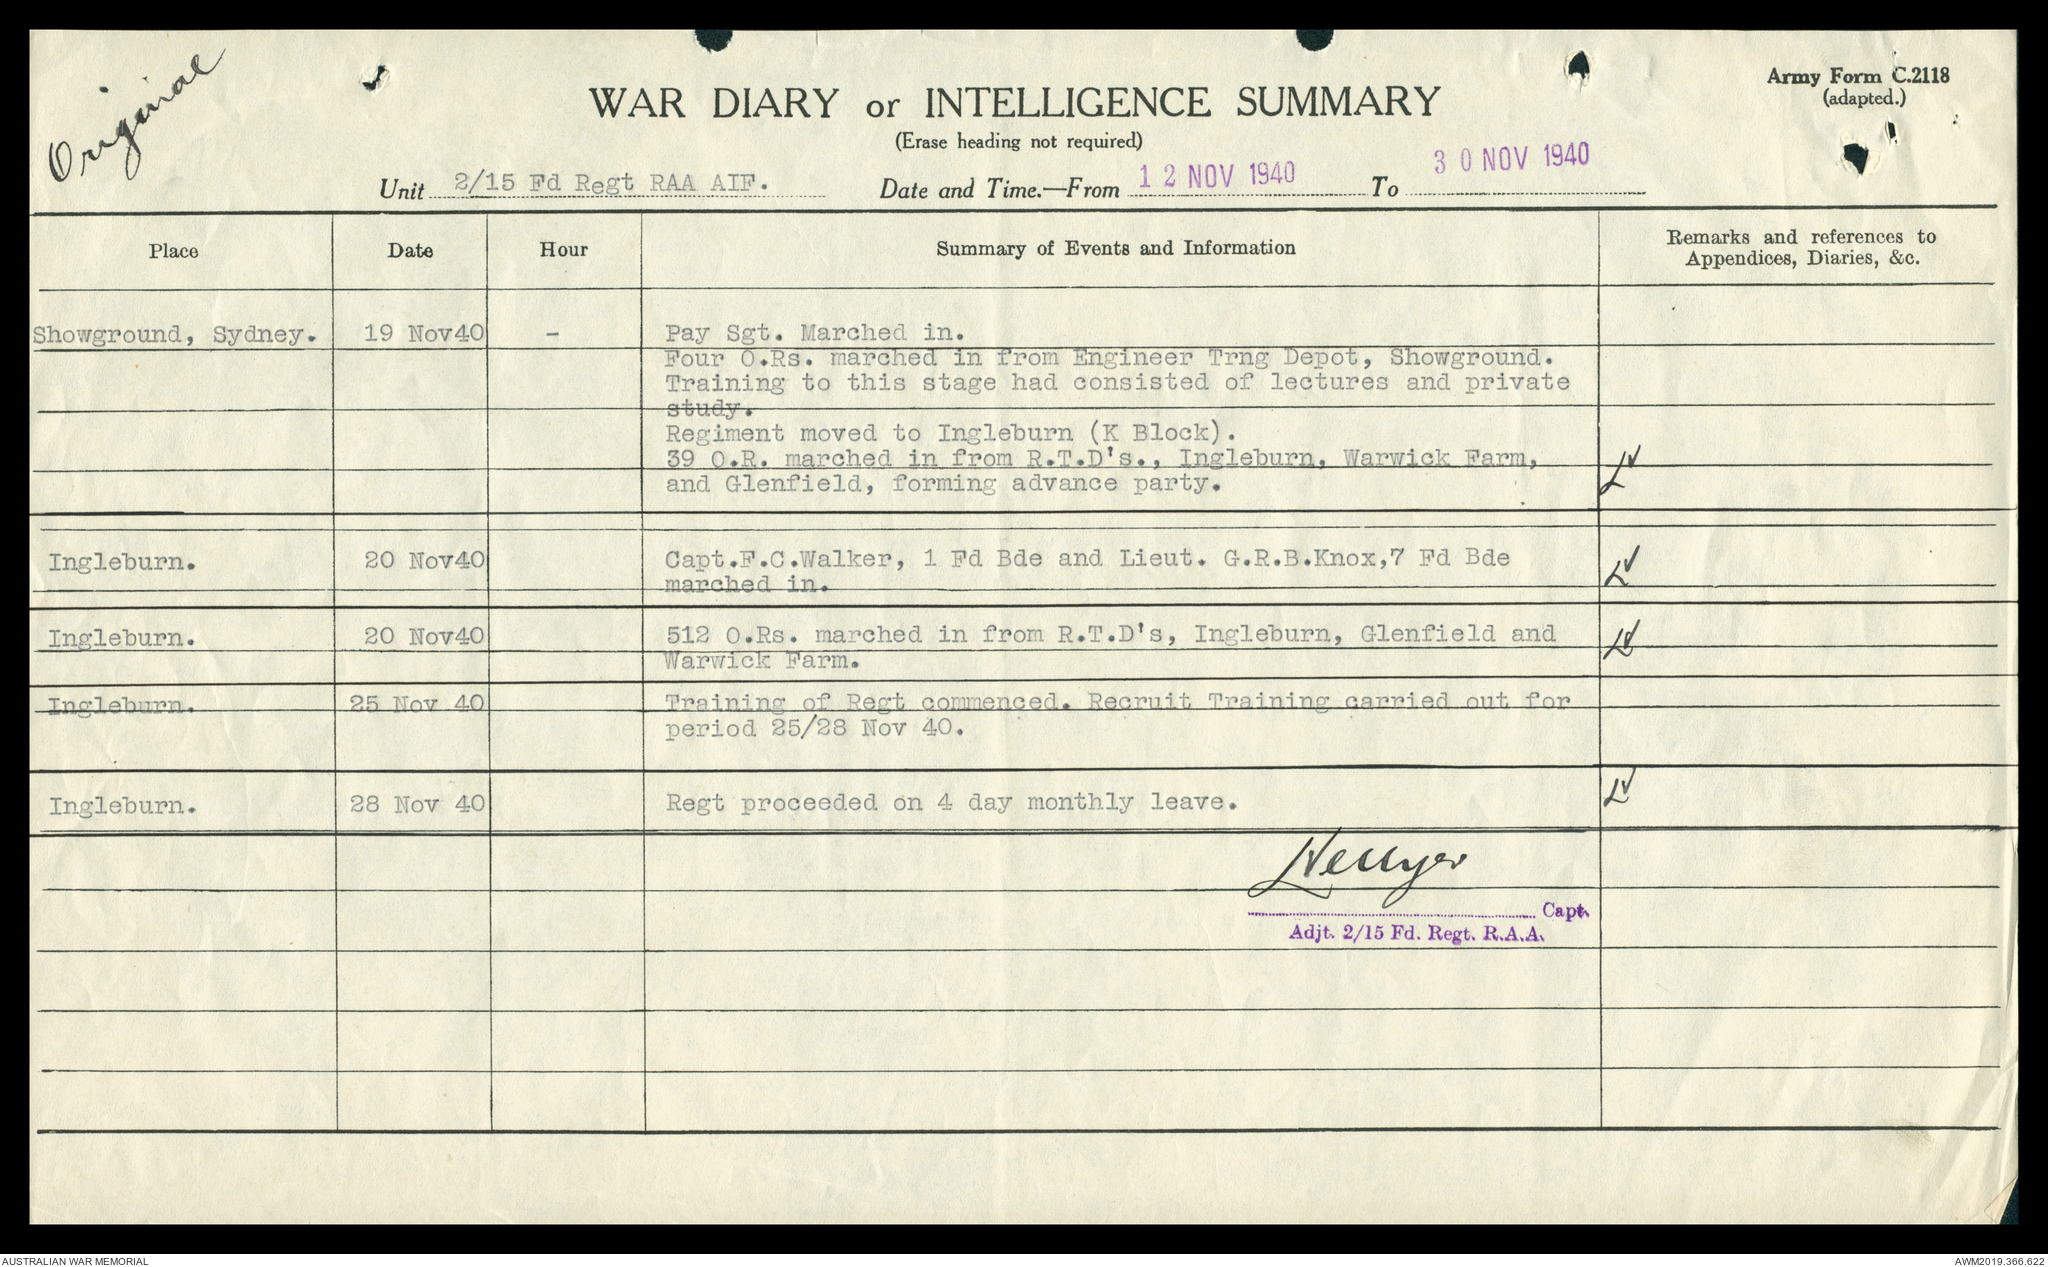 Original
Army Form C.2118
(adapted.)
WAR DIARY or INTELLIGENCE SUMMARY
(Erase heading not required)
Unit 2/15 Fd Regt RAA AIF. Date and Time.—From 12 NOV 1940 To 30 NOV 1940
Place Date Hour Summary of Events and Information Remarks and references to
Appendices, Diaries, &c.
Showground, Sydney. 19 Nov40 - Pay Sgt. Marched in.
Four O.Rs. marched in from Engineer Trng Depot, Showground.
Training to this stage had consisted of lectures and private
study.
Regiment moved to Ingleburn (K Block).
39 O.R. marched in from R.T.D's., Ingleburn, Warwick Farm,
and Glenfield, forming advance party.
Ingleburn. 20 Nov40 Capt.F.C.Walker, 1 Fd Bde and Lieut. G.R.B.Knox,7 Fd Bde
marched in.
Ingleburn. 20 Nov40 512 O.Rs. marched in from R.T.D's, Ingleburn, Glenfield and
Warwick Farm.
Ingleburn. 25 Nov 40 Training of Regt commenced. Recruit Training carried out for
period 25/28 Nov 40.
Ingleburn. 28 Nov 40 Regt proceeded on 4 day monthly leave.
Capt.
Adjt. 2/15 Fd. Regt. R.A.A.
AUSTRALIAN WAR MEMORIAL
AWM2019.366.622